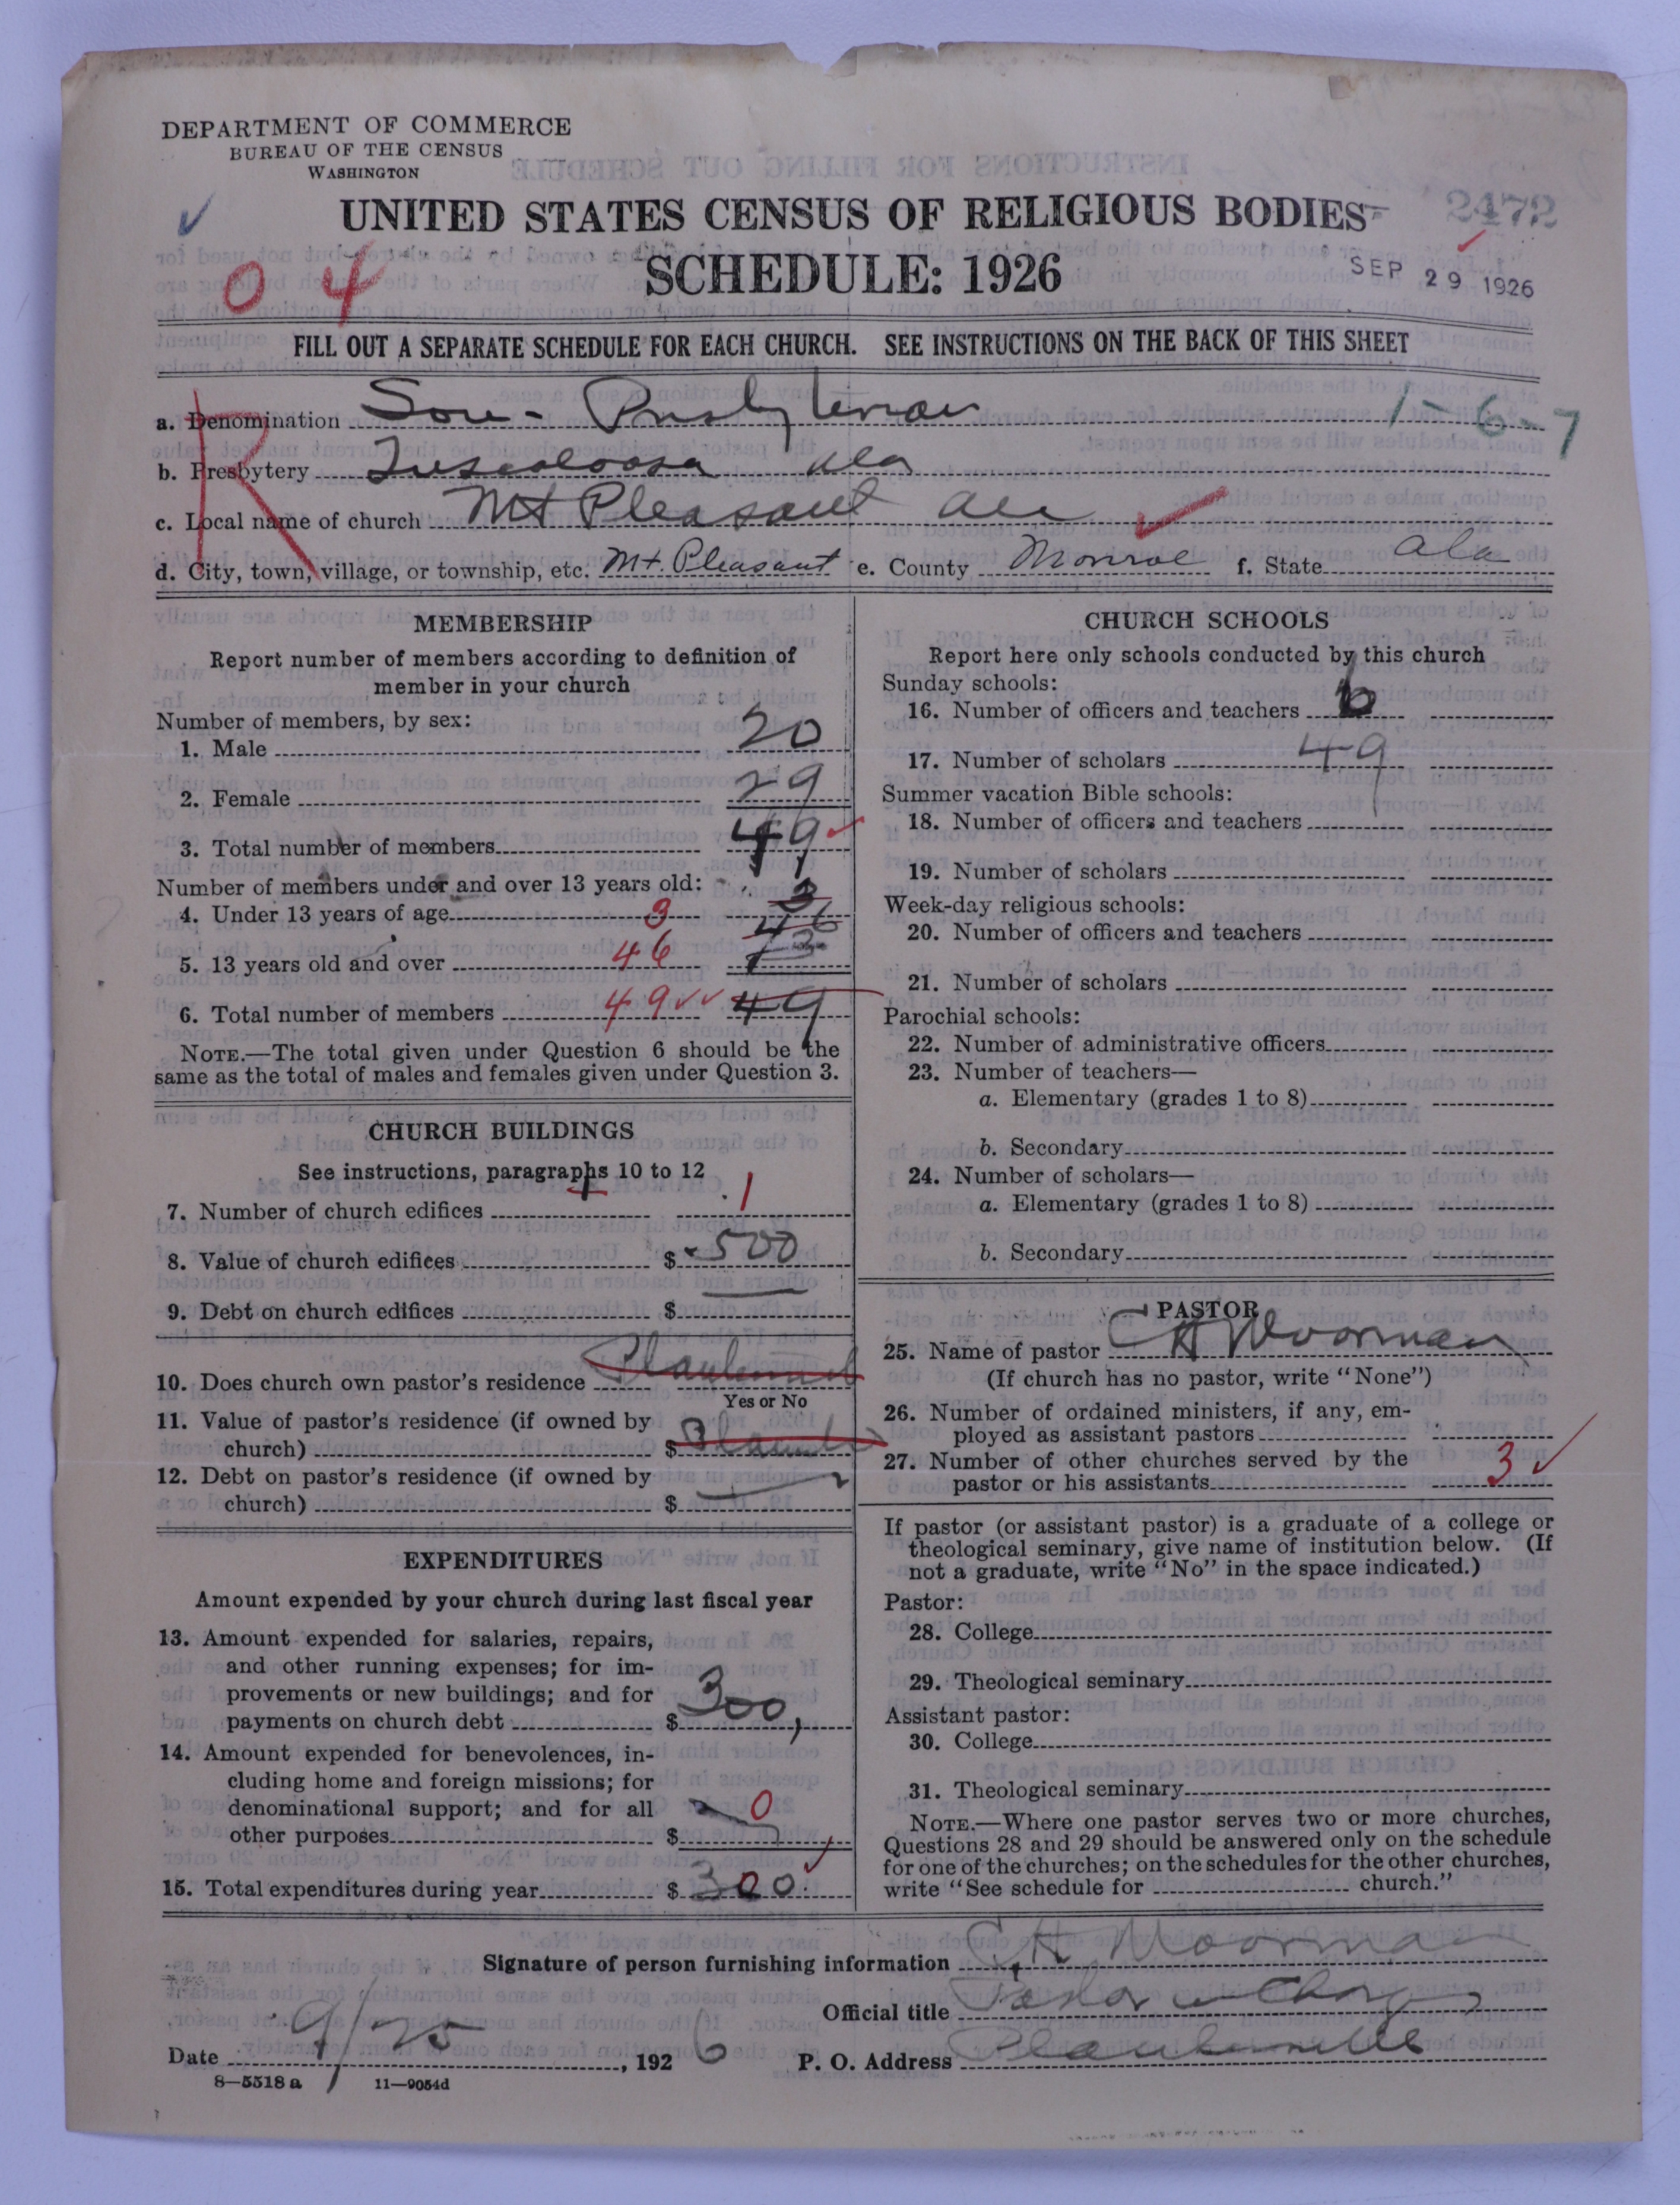 DEPARTMENT OF COMMERCE
BUREAU OF THE CENSUS
WASHINGTON
UNITED STATES CENSUS OF RELIGIOUS BODIES
2472
SCHEDULE: 1926
SEP 29 1926
0 4
FILL OUT A SEPARATE SCHEDULE FOR EACH CHURCH. SEE INSTRUCTIONS ON THE BACK OF THIS SHEET
R
a. Denomination Sou - Presbyterian 1-6-7
b. Presbytery Tuscaloosa Ala
c. Local name of church Mt Pleasant Ala
d. City, town, village, or township, etc. Mt. Pleasant e. County Monroe f. State Ala
MEMBERSHIP
Report number of members according to definition of
member in your church
Number of members, by sex:
1. Male 20
2. Female 29
3. Total number of members 49
Number of members under and over 13 years old:
4. Under 13 years of age 3 3
5. 13 years old and over 46 46
6. Total number of members 49 49
NOTE.—The total given under Question 6 should be the
same as the total of males and females given under Question 3.
CHURCH BUILDINGS
See instructions, paragraphs 10 to 12
7. Number of church edifices 1
8. Value of church edifices $ 500
9. Debt on church edifices $
10. Does church own pastor's residence
Yes or No
11. Value of pastor's residence (if owned by
church) $
12. Debt on pastor's residence (if owned by
church) $
EXPENDITURES
Amount expended by your church during last fiscal year
13. Amount expended for salaries, repairs,
and other running expenses; for im-
provements or new buildings; and for
payments on church debt $ 300,
14. Amount expended for benevolences, in-
cluding home and foreign missions; for
denominational support; and for all
other purposes $ 0
15. Total expenditures during year $ 300.
CHURCH SCHOOLS
Report here only schools conducted by this church
Sunday schools:
16. Number of officers and teachers 6
17. Number of scholars 49
Summer vacation Bible schools:
18. Number of officers and teachers
19. Number of scholars
Week-day religious schools:
20. Number of officers and teachers
21. Number of scholars
Parochial schools:
22. Number of administrative officers
23. Number of teachers—
a. Elementary (grades 1 to 8)
b. Secondary
24. Number of scholars—
a. Elementary (grades 1 to 8)
b. Secondary
PASTOR
25. Name of pastor C H Moorman
(If church has no pastor, write "None")
26. Number of ordained ministers, if any, em-
ployed as assistant pastors
27. Number of other churches served by the
pastor or his assistants 3
If pastor (or assistant pastor) is a graduate of a college or
theological seminary, give name of institution below. (If
not a graduate, write "No" in the space indicated.)
Pastor:
28. College
29. Theological seminary
Assistant pastor:
30. College
31. Theological seminary
NOTE.—Where one pastor serves two or more churches,
Questions 28 and 29 should be answered only on the schedule
for one of the churches; on the schedules for the other churches,
write "See schedule for church."
Signature of person furnishing information C H Moorman
Official title Pastor
Date 9/25, 1926 P. O. Address
8—5518 a 11—9054d